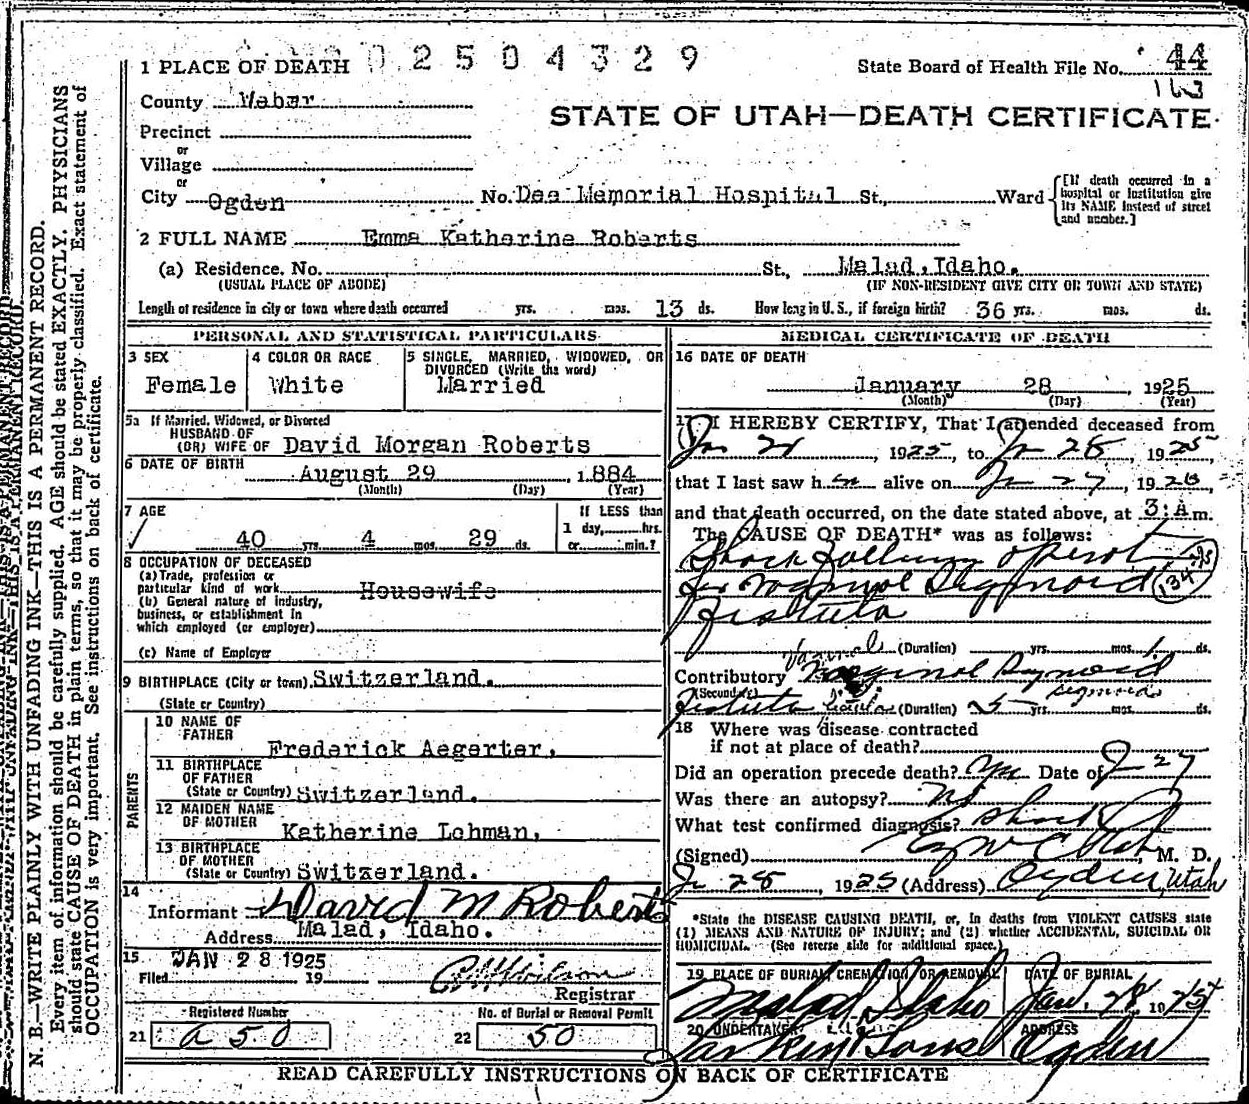 02504329
1 PLACE OF DEATH
State Board of Health File No. 44
163
County Weber
STATE OF UTAH—DEATH CERTIFICATE.
Precinct
or
Village
or
City Ogden No. Dee Memorial Hospital St., Ward
[If death occurred in a hospital or institution give its NAME instead of street and number.]
2 FULL NAME Emma Katherine Roberts
(a) Residence. No. St., Malad, Idaho.
(USUAL PLACE OF ABODE) (IF NON-RESIDENT GIVE CITY OR TOWN AND STATE)
Length of residence in city or town where death occurred yrs. mos. 13 ds. How long in U. S., if foreign birth? 36 yrs. mos. ds.
PERSONAL AND STATISTICAL PARTICULARS
3 SEX
Female
4 COLOR OR RACE
White
5 SINGLE, MARRIED, WIDOWED, OR
DIVORCED (Write the word)
Married
5a If Married, Widowed, or Divorced
HUSBAND OF
(OR) WIFE OF David Morgan Roberts
6 DATE OF BIRTH
August 29, 1884
(Month) (Day) (Year)
7 AGE
40 yrs. 4 mos. 29 ds.
If LESS than
1 day, hrs.
or min.?
8 OCCUPATION OF DECEASED
(a) Trade, profession or
particular kind of work Housewife
(b) General nature of industry,
business, or establishment in
which employed (or employer)
(c) Name of Employer
9 BIRTHPLACE (City or town) Switzerland.
(State or Country)
PARENTS
10 NAME OF
FATHER
Frederick Aegerter,
11 BIRTHPLACE
OF FATHER
(State or Country) Switzerland.
12 MAIDEN NAME
OF MOTHER
Katherine Lehman,
13 BIRTHPLACE
OF MOTHER
(State or Country) Switzerland.
14
Informant David M Roberts
Address Malad, Idaho.
15 JAN 28 1925
Filed 19
Registrar
Registered Number
21 a 50
No. of Burial or Removal Permit
22 50
MEDICAL CERTIFICATE OF DEATH
16 DATE OF DEATH
January 28, 1925
(Month) (Day) (Year)
17 I HEREBY CERTIFY, That I attended deceased from
Jan 21, 1925, to Jan 28, 1925,
that I last saw her alive on Jan 27, 1925,
and that death occurred, on the date stated above, at 3:A m.
The CAUSE OF DEATH* was as follows:
Shock following operation
for vaginal Sigmoid 134
fistula
(Duration) yrs. mos. 1 ds.
Contributory Vaginal Sigmoid
(Secondary)
fistula (Duration) yrs. mos. ds.
18 Where was disease contracted
if not at place of death?
Did an operation precede death? Yes Date of Jan 27
Was there an autopsy? No
What test confirmed diagnosis?
(Signed) , M. D.
Jan 28, 1925 (Address) Ogden, Utah
*State the DISEASE CAUSING DEATH, or, in deaths from VIOLENT CAUSES state
(1) MEANS AND NATURE OF INJURY; and (2) whether ACCIDENTAL, SUICIDAL OR
HOMICIDAL. (See reverse side for additional space.)
19 PLACE OF BURIAL CREMATION OR REMOVAL
Malad Idaho
DATE OF BURIAL
Jan. 28 1925
20 UNDERTAKER
Larkin & Sons
ADDRESS
Ogden
READ CAREFULLY INSTRUCTIONS ON BACK OF CERTIFICATE
N. B.—WRITE PLAINLY WITH UNFADING INK—THIS IS A PERMANENT RECORD.
Every item of information should be carefully supplied. AGE should be stated EXACTLY. PHYSICIANS
should state CAUSE OF DEATH in plain terms, so that it may be properly classified. Exact statement of
OCCUPATION is very important. See instructions on back of certificate.